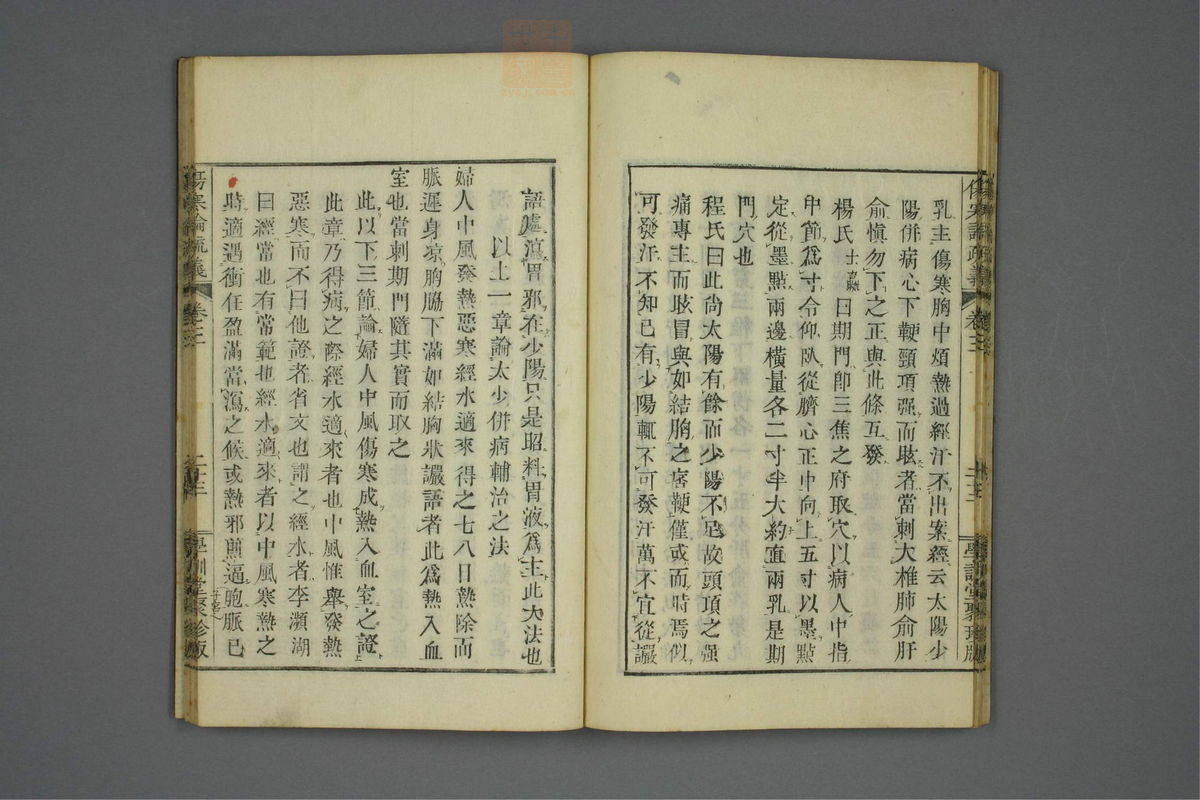 乳主傷寒胸中煩熱過經汗不出案經云太陽少
陽併病心下鞕頸項强而眩者當刺大椎肺俞肝
俞愼勿下之正與此條互發
楊氏士瀛曰期門卽三焦之府取穴以病人中指
中節爲寸令仰臥從臍心正中向上五寸以墨點
定從墨點兩邊橫量各二寸半大約直兩乳是期
門穴也
程氏曰此尚太陽有餘而少陽不足故頭項之强
痛專主而眩冒與如結胸之痞鞕僅或而時焉似
可發汗不知已有少陽輒不可發汗萬不宜從讝
語處瀉胃邪在少陽只是昭料胃液爲主此大法也
以上一章論太少併病輔治之法
婦人中風發熱惡寒經水適來得之七八日熱除而
脈遲身凉胸脇下滿如結胸狀讝語者此爲熱入血
室也當刺期門隨其實而取之
此以下三節論婦人中風傷寒成熱入血室之證
此章乃得病之際經水適來者也中風惟舉發熱
惡寒而不曰他證者省文也謂之經水者李瀕湖
曰經常也有常範也經水適來者以中風寒熱之
時適遇衝任盈滿當瀉之候或熱邪煎逼胞脈已
傷寒論疏義 卷三 二十三 學訓堂聚珍版